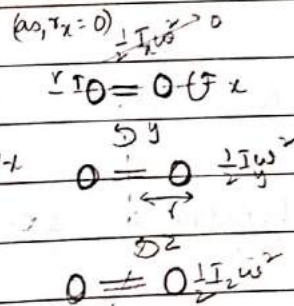 (as, r_x = 0) ½ I_x ω² → 0
O = O x
y
O = O ½ I_y ω²
r
z
O = O ½ I_z ω²